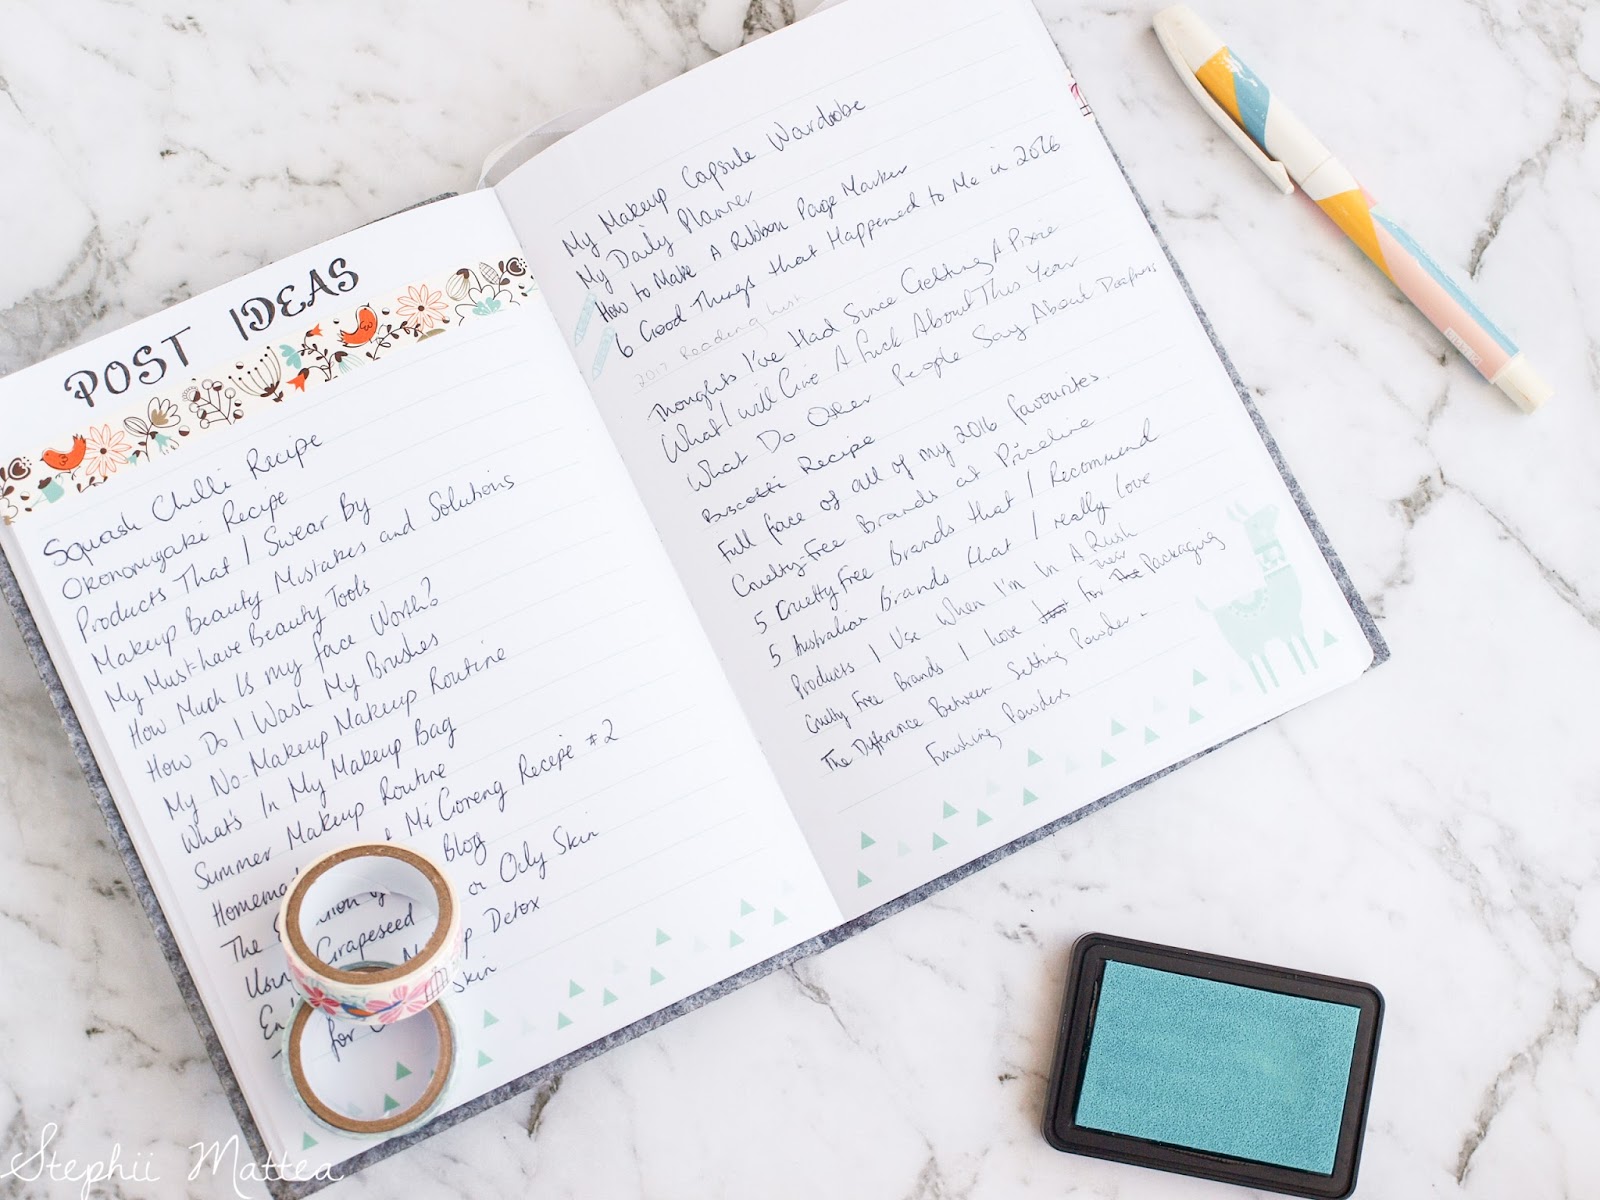 POST IDEAS
Squash Chilli Recipe
Okonomiyaki Recipe
Products That I Swear By
Makeup Beauty Mistakes and Solutions
My Must-have Beauty Tools
How Much Is my face Worth?
How Do I Wash My Brushes
My No-Makeup Makeup Routine
What's In My Makeup Bag
Summer Makeup Routine
Mi Goreng Recipe #2
The Blog
Grapeseed or Oily Skin
Detox
for Skin
My Makeup Capsule Wardrobe
My Daily Planner
How to Make A Ribbon Page Marker
6 Good Things that Happened to Me in 2016
2017 Reading
Thoughts I've Had Since Getting A Pixie
What I will Give A Fuck About This Year
What Do Other People Say About Deafness
Biscotti Recipe
Full face of all of my 2016 favourites.
Cruelty-Free Brands at Priceline
5 Cruelty Free Brands that I Recommend
5 Australian Brands that I really love
Products I Use When I'm In A Rush
Cruelty Free Brands I love for their Packaging
The Difference Between Setting Powder -
Finishing Powders
Stephii Mattea